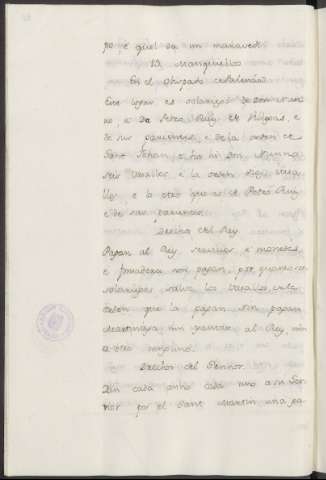 po, e quel da un maravedi
19 Manquillos
En el Obispado de Palencia
Este logar es solariego de Don
no, e de Pero Ruiz de Villegas, e
de sus parientes, e de la orden de
Sant Johan, e ha hi Don Nunno
seis vasallos, e la orden siete vasa
llos, e lo otro que es de Pero Ruiz
e de sus parientes
Derechos del Rey
Pagan al Rey servicios, e monedas,
e fonsadera non pagan, por quanto es
solariego, salvo los vasallos de la
orden que la pagan. Non pagan
martiniega nin yantar al Rey, nin
a otro ninguno.
Derechos del Sennor
Dan cada anno cada uno a su Sen
nor por el Sant Martin una fa